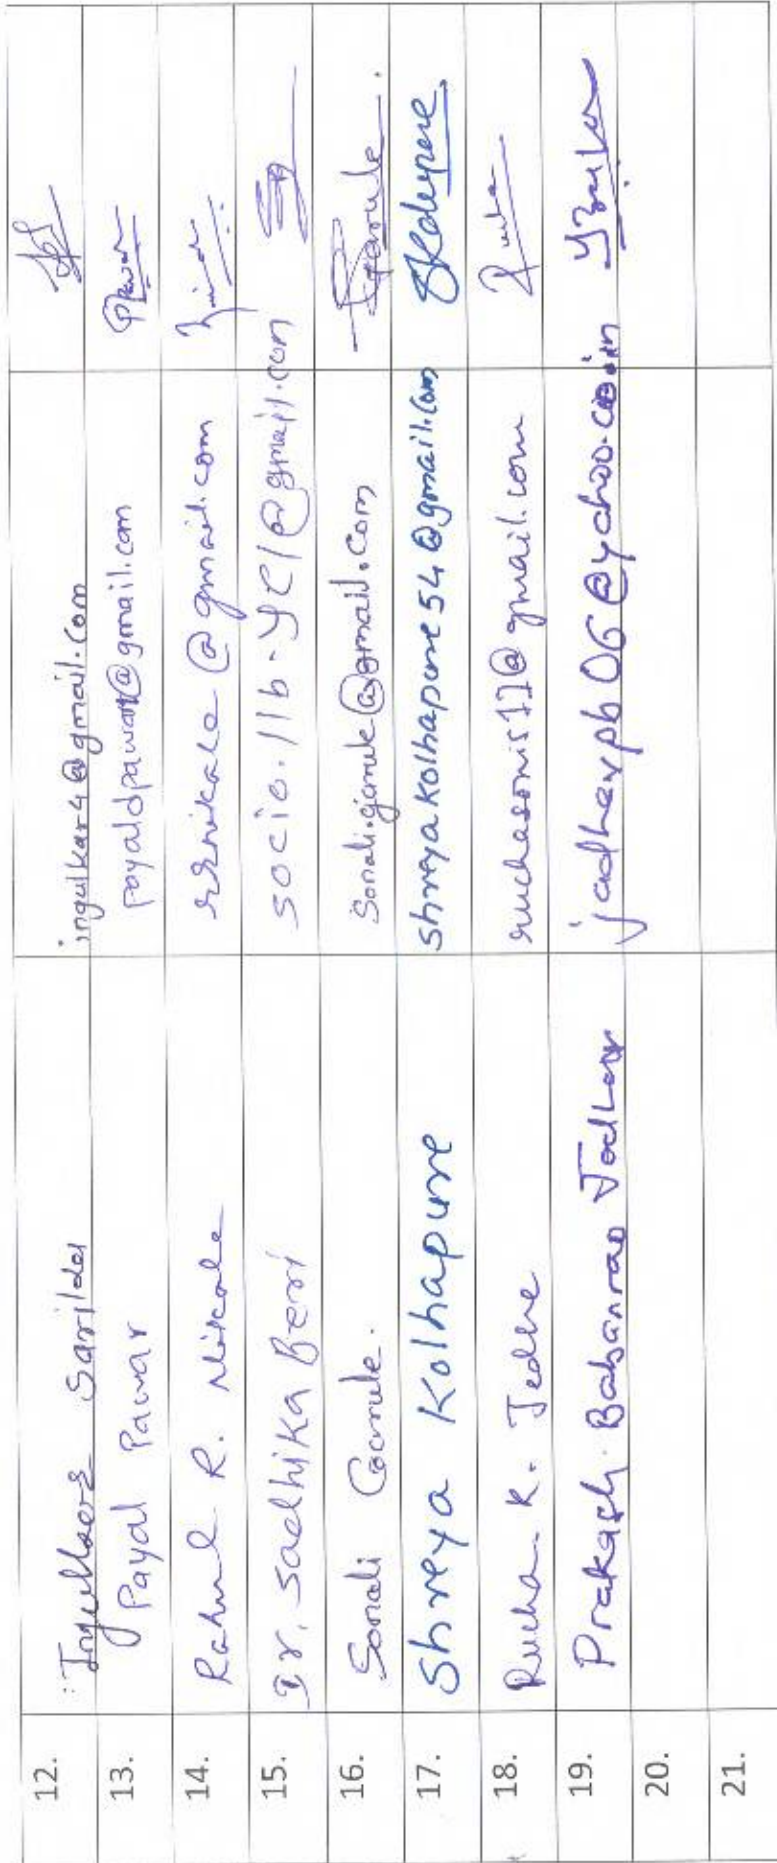 12. Ingulkar Sarika ingulkar4@gmail.com
13. Payal Pawar payaldpawar@gmail.com Pawar
14. Rahul R. Nikale rrnikale@gmail.com
15. Dr. Sadhika Beri socio.llb-yc1@gmail.com
16. Sonali Garule. sonali.garule@gmail.com Garule.
17. Shreya Kolhapure shreyakolhapure54@gmail.com SKolhapure
18. Rucha K. Jedhe ruchasonis11@gmail.com Rucha
19. Prakash Babanrao Jadhav jadhavpb06@yahoo.co.in
20.
21.